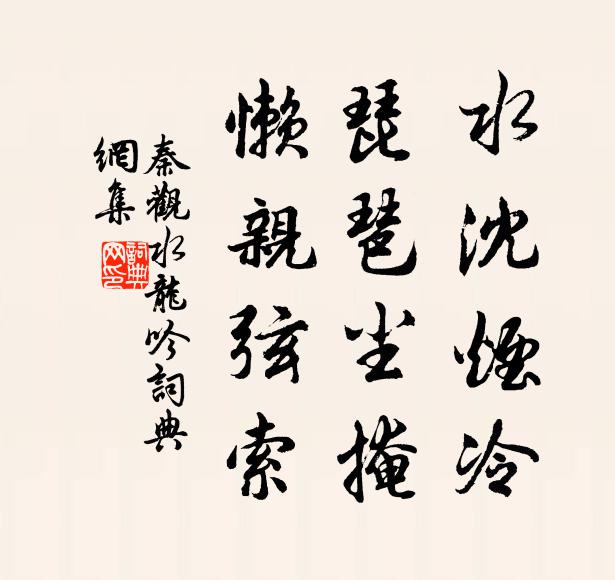 水沈煙冷
琵琶尘掩
懒親弦索
秦觀水龍吟詞典
網集
詞典
网印